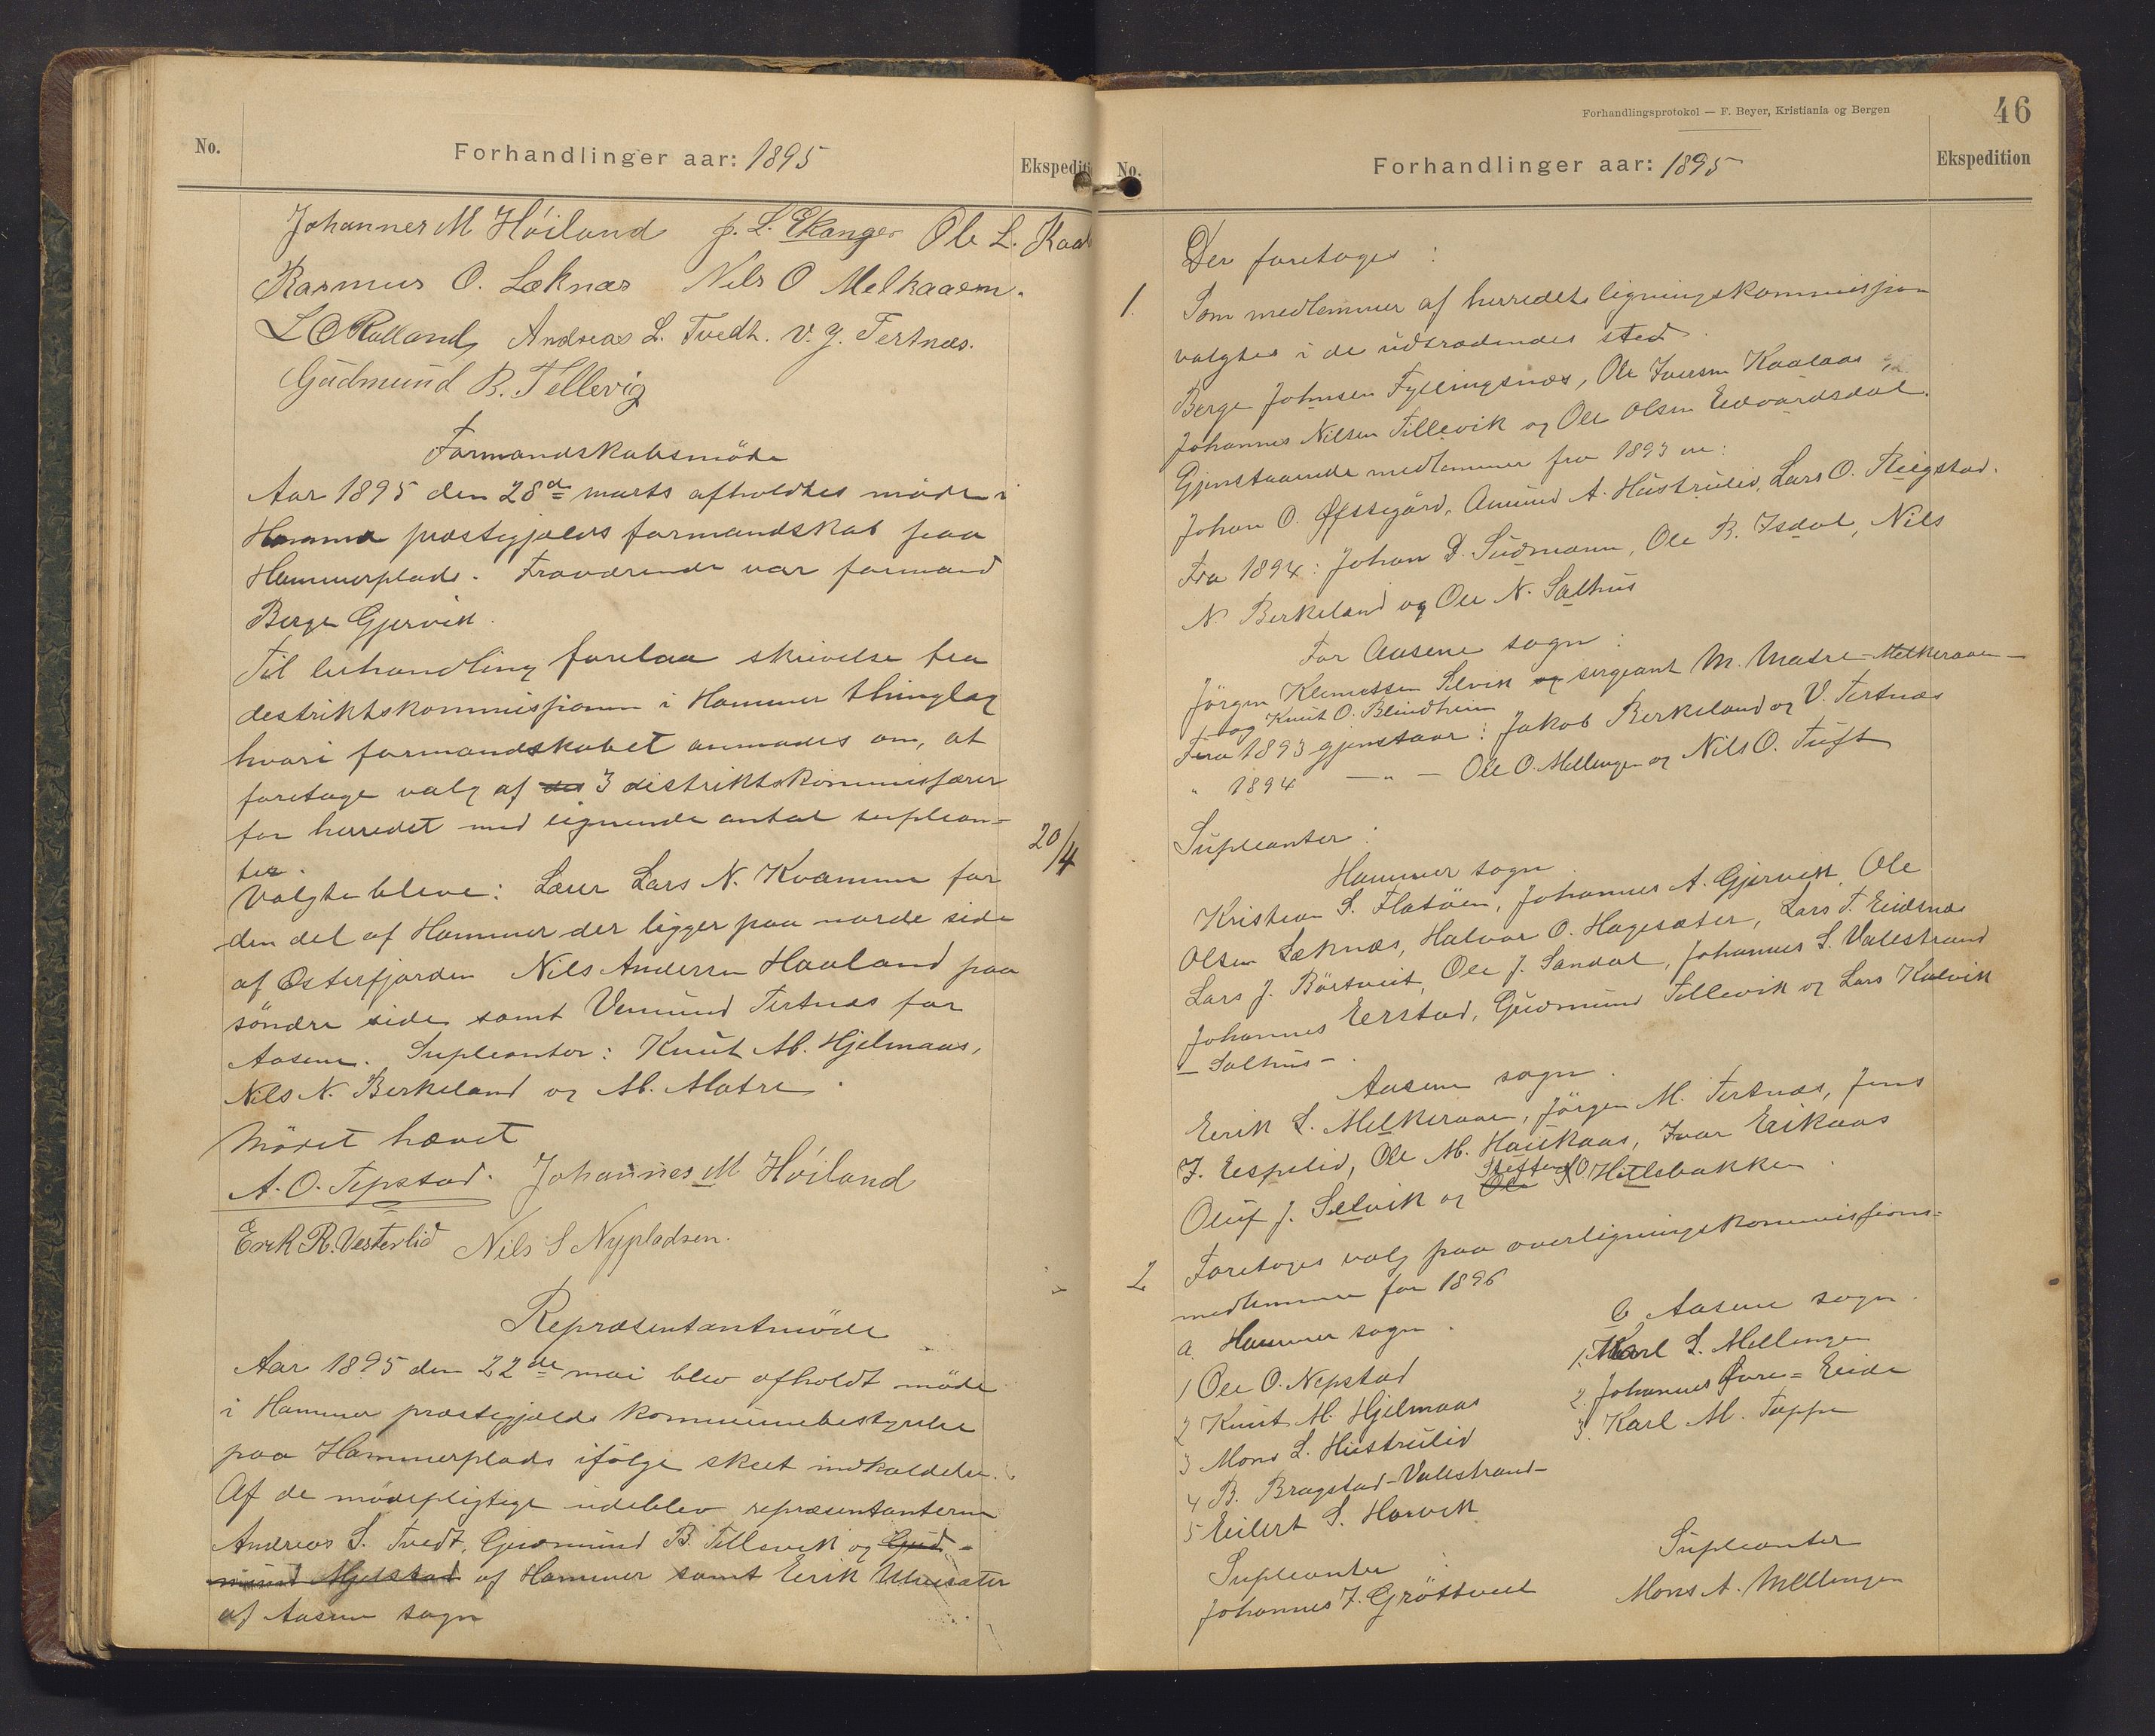 No.
Forhandlinger aar: 1895
Ekspediti
Johannes M Høiland J. L. Ekanger Ole L. Kaal
Rasmus O. Løknæs Nils O Melkaaen.
Andreas L. Tvedt. V. J. Tertnæs.
Gudmund B. Tellevig
Formandskabsmøde
Aar 1895 den 28de marts afholdtes møde i
Hammer præstegjælds formandskab paa
Hammerplads. Fraværende var formand
Berge Gjervik.
Til behandling forelaa skrivelse fra
destriktskommissionen i Hammer thinglag
hvori formandskabet anmodes om, at
foretage valg af des 3 distriktskommissærer
for herredet med lignende antal suplean=
ter.
Valgte bleve: Lærer Lars N. Kvamme for
den del af Hammer der ligger paa norde side
af Østerfjorden Nils Andersen Haaland paa
søndre side samt Vemund Tertnæs for
Aasene. Supleanter: Knut M. Hjelmaas,
Nils N. Berkeland og M. Matre.
20/4
Mødet hævet
A. O. Tepstad. Johannes M Høiland
Erik R. Vesterlid Nils S Nypladsen.
Repræsentantmøde
Aar 1895 den 22de mai blev afholdt møde
i Hammer præstegjælds kommunebestyrelse
paa Hammerplads ifølge skeet indkaldelse.
Af de mødepligtige udeblev repræsentanterne
Andreas L. Tvedt, Gudmund B. Tellevik og Gud-
mund Mjelstad af Hammer samt Eerik Ulvesæter
af Aasene sogn
Forhandlingsprotokol — F. Beyer, Kristiania og Bergen
46
No.
Forhandlinger aar: 1895
Ekspedition
Der foretoges:
1. Som medlemmer af herredets ligningskommission
valgtes i de udtrædendes sted
Berge Johnsen Fyllingsnæs, Ole Iversen Kaalaas
Johannes Nilsen Tillevik og Ole Olsen Eedvardsdal.
Gjenstaaende medlemmer fra 1893 er:
Johan O. Øfstegård, Amund A. Hustrulid, Lars O. Reigstad.
Fra 1894: Johan D. Sudmann, Ole B. Isdal, Nils
N. Berkeland og Ole N. Salhus
For Aasene sogn:
Jørgen Klemetsen Selvik og sergeant M. Matre - Melkeraaen -
og Knut O. Blindheim
Fra 1893 gjenstaar: Jakob Berkeland og V. Tertnæs
" 1894 — " — Ole O. Mellingen og Nils O. Tuft
Supleanter:
Hammer sogn
Kristian S. Flatøen, Johannes A. Gjervik, Ole
Olsen Løknæs, Halvor O. Hagesæter, Lars T. Eidsnæs
Lars J. Børtveit, Ole J. Sandal, Johannes S. Valestrand
Johannes Eerstad, Gudmund Tellevik og Lars Kalvik
- Salhus -.
Aasene sogn.
Eerik L. Melkeraaen, Jørgen M. Tertnæs, Jens
J. Eespelid, Ole M. Haukaas, Ivar Eeikaas
Oluf J. Selvik og Ole Steffen O. Hetlebakken.
2 Foretoges valg paa overligningskommissions=
medlemmer for 1896
a. Hammer sogn.
1 Ole O. Nepstad
2 Knut M. Hjelmaas
3 Mons L. Hustrulid
4 B. Bragstad - Valestrand -
5 Eilert S. Horvik
Supleanter:
Johannes J. Grøttveit
b Aasene sogn.
1. Karl L. Mellingen
2. Johannes Øvre = Eeide
3. Karl M. Toppe
Supleanter
Mons A. Mellingen